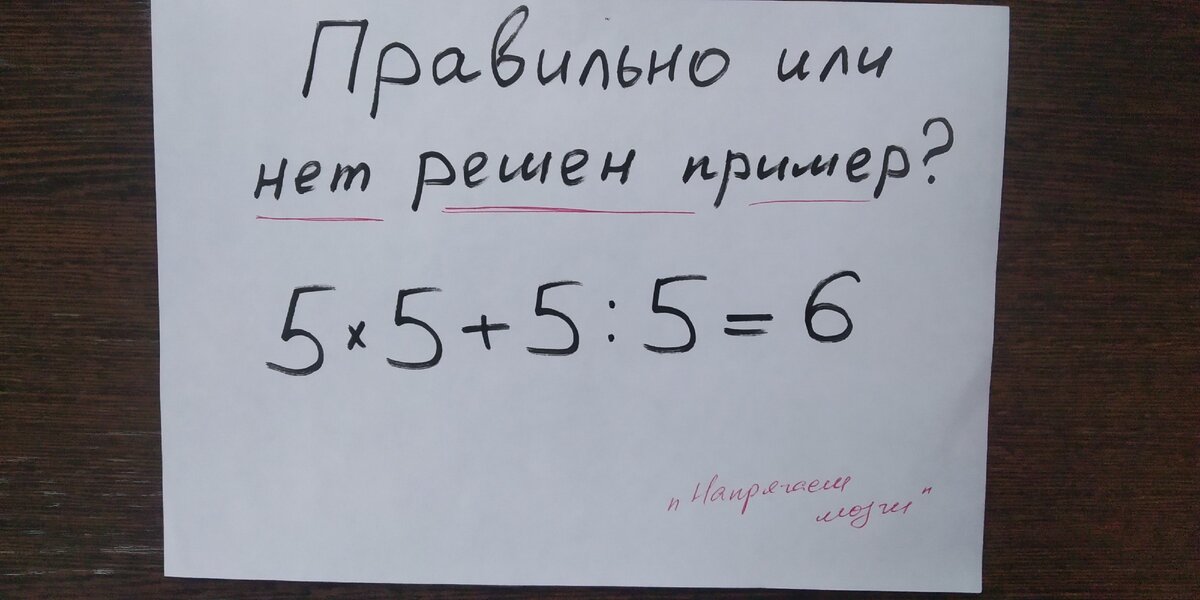 Правильно или
нет решен пример?
5×5+5:5=6
"Напрягаем
мозги"